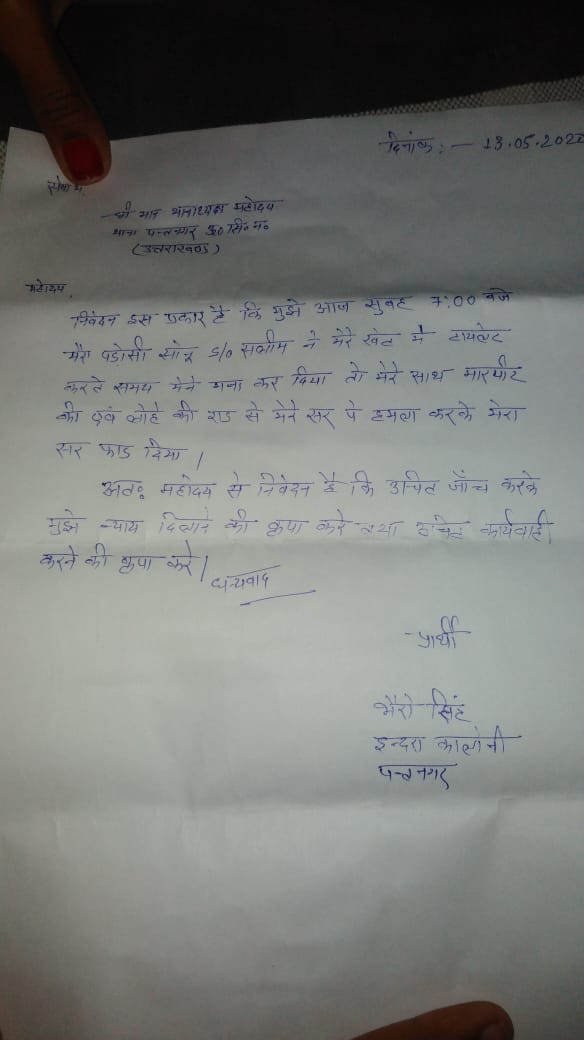 दिनांक :- 13.05.202
सेवा में,
श्री मान थानाध्यक्ष महोदय
थाना पन्तनगर उ० सि० न०
(उत्तराखण्ड)
महोदय,
निवेदन इस प्रकार है कि मुझे आज सुबह 7:00 बजे
मेरा पड़ोसी सोनू S/o सलीम ने मेरे खेत में टायलेट
करते समय मेने मना कर दिया तो मेरे साथ मारपीट
की एवं लोहे की राड से मेरे सर पे हमला करके मेरा
सर फाड दिया।
अतः महोदय से निवेदन है कि उचित जाँच करके
मुझे न्याय दिलाने की कृपा करे तथा उचित कार्यवाही
करने की कृपा करे।
धन्यवाद
प्रार्थी
भैरो सिंह
इन्दरा कालोनी
पन्तनगर